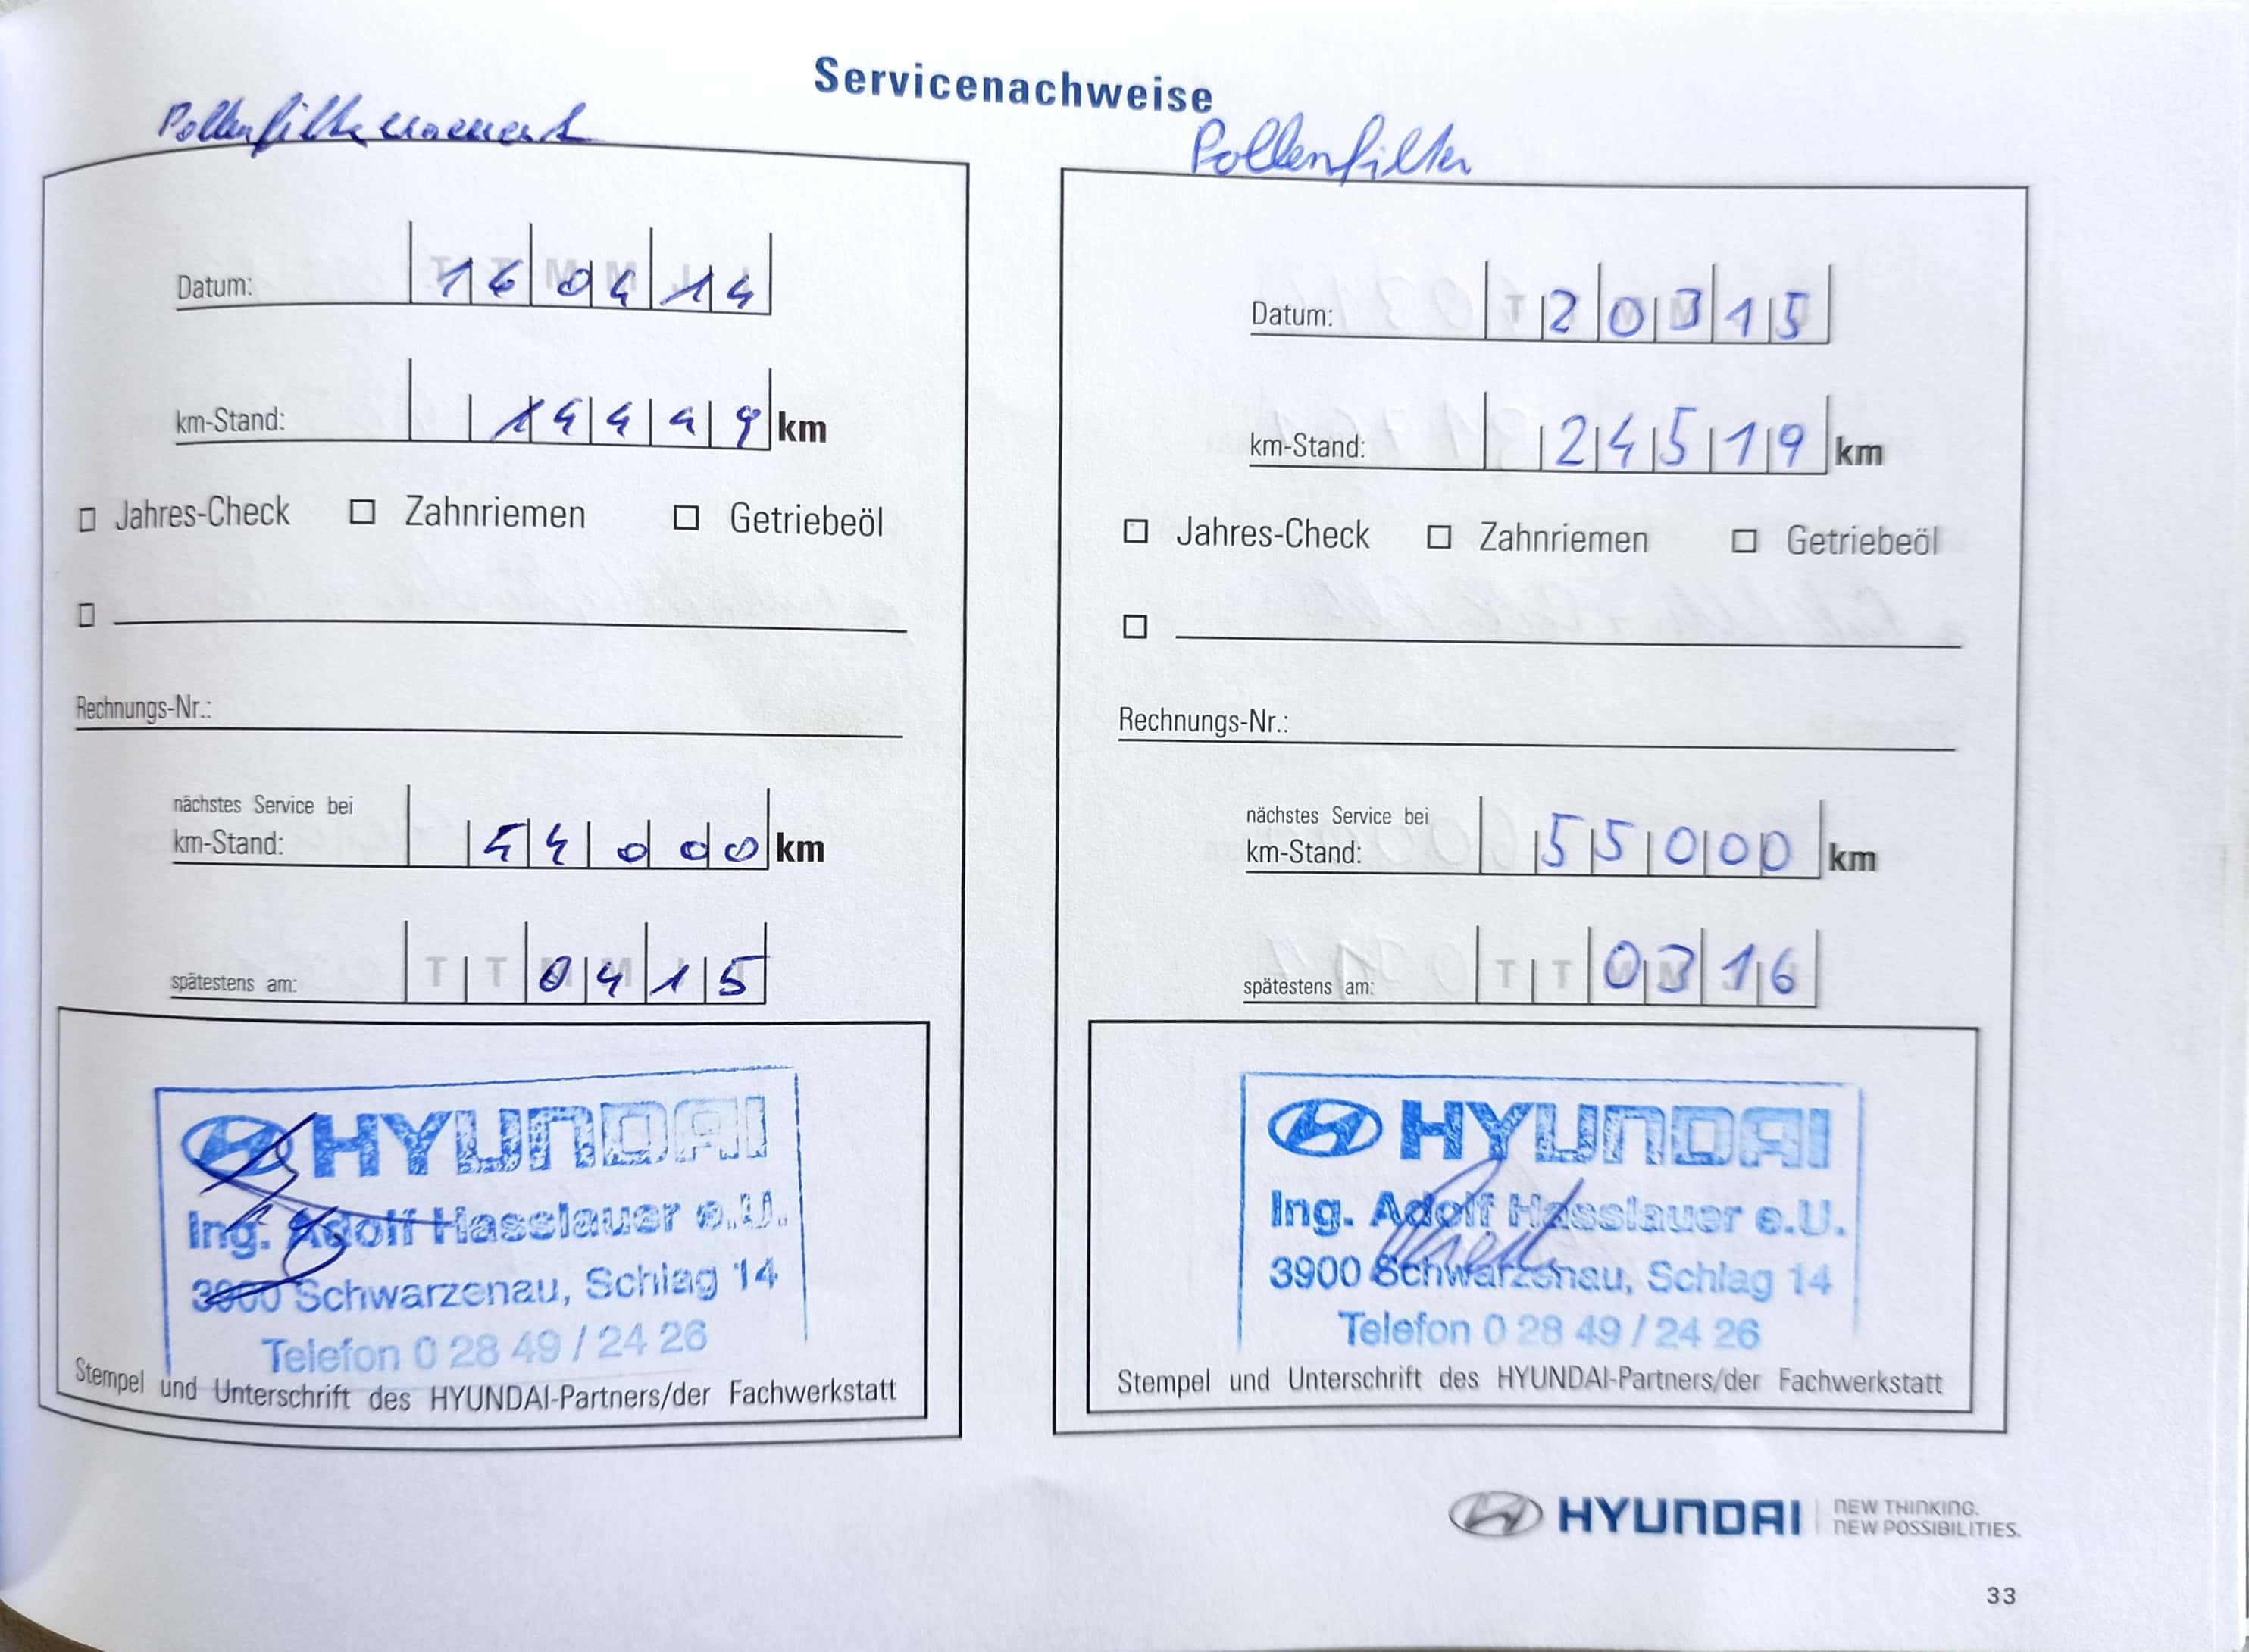 Servicenachweise
Pollenfilterelement
Datum: 16 04 14
km-Stand: 14449 km
Jahres-Check Zahnriemen Getriebeöl
Rechnungs-Nr.:
nächstes Service bei
km-Stand: 44000 km
spätestens am: TT 04 15
HYUNDAI
Ing. Adolf Hasslauer e.U.
3900 Schwarzenau, Schlag 14
Telefon 0 28 49 / 24 26
Stempel und Unterschrift des HYUNDAI-Partners/der Fachwerkstatt
Pollenfilter
Datum: T2 03 15
km-Stand: 24519 km
Jahres-Check Zahnriemen Getriebeöl
Rechnungs-Nr.:
nächstes Service bei
km-Stand: 55000 km
spätestens am: TT 03 16
HYUNDAI
Ing. Adolf Hasslauer e.U.
3900 Schwarzenau, Schlag 14
Telefon 0 28 49 / 24 26
Stempel und Unterschrift des HYUNDAI-Partners/der Fachwerkstatt
HYUNDAI NEW THINKING.
NEW POSSIBILITIES.
33